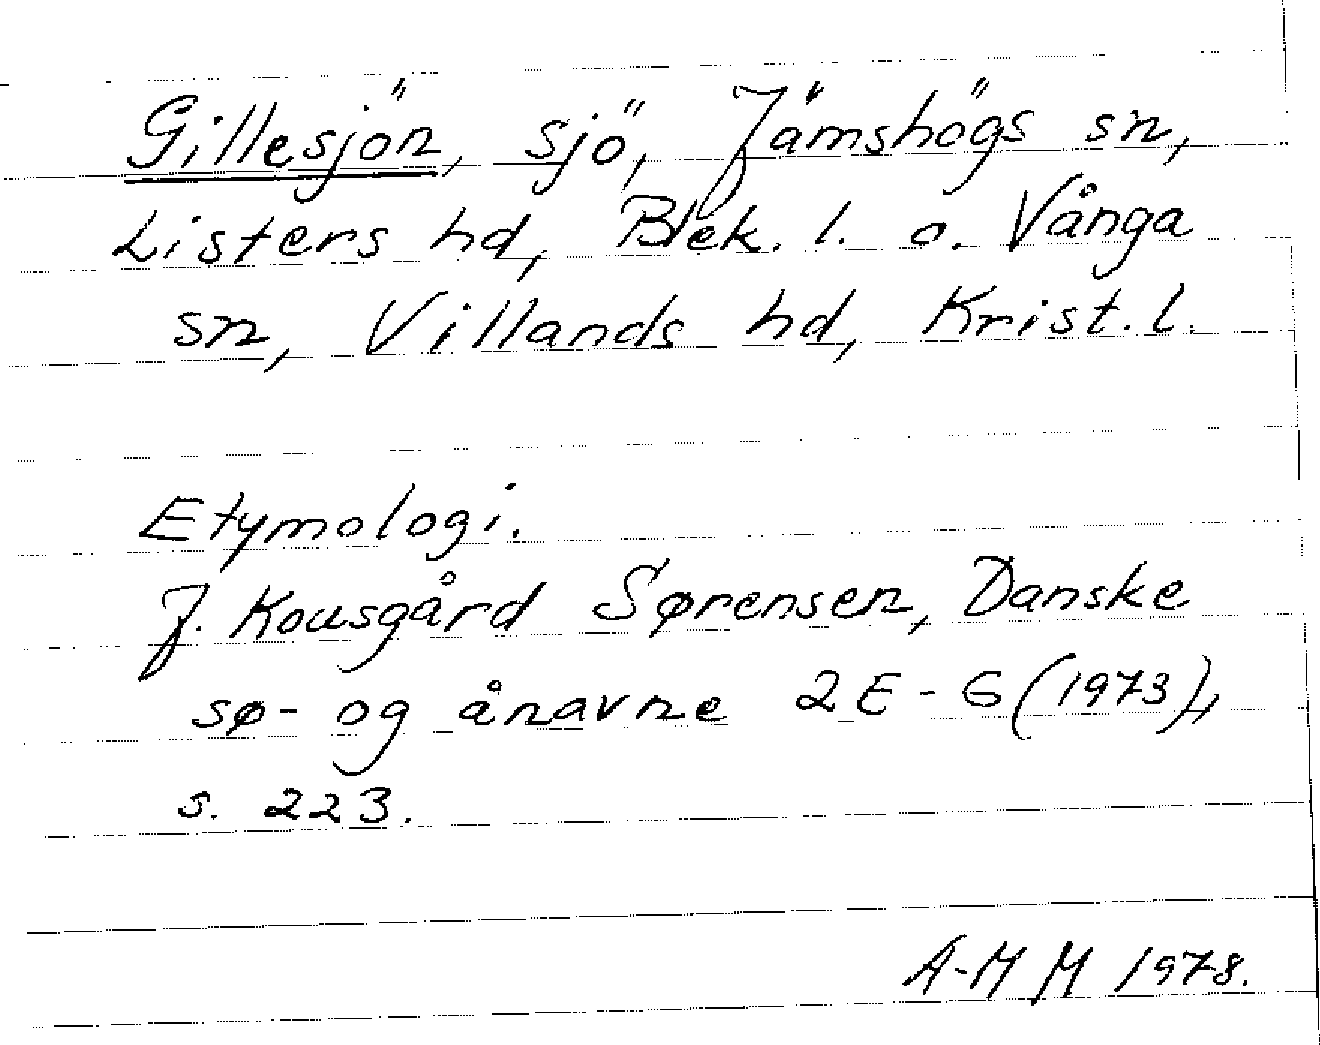 Gillesjön, sjö, Jämshögs sn,
Listers hd, Blek. l. o. Vånga
sn, Villands hd, Krist. l.
Etymologi.
J. Kousgård Sørensen, Danske
sø- og ånavne 2 E - G (1973),
s. 223.
A-M M 1978.